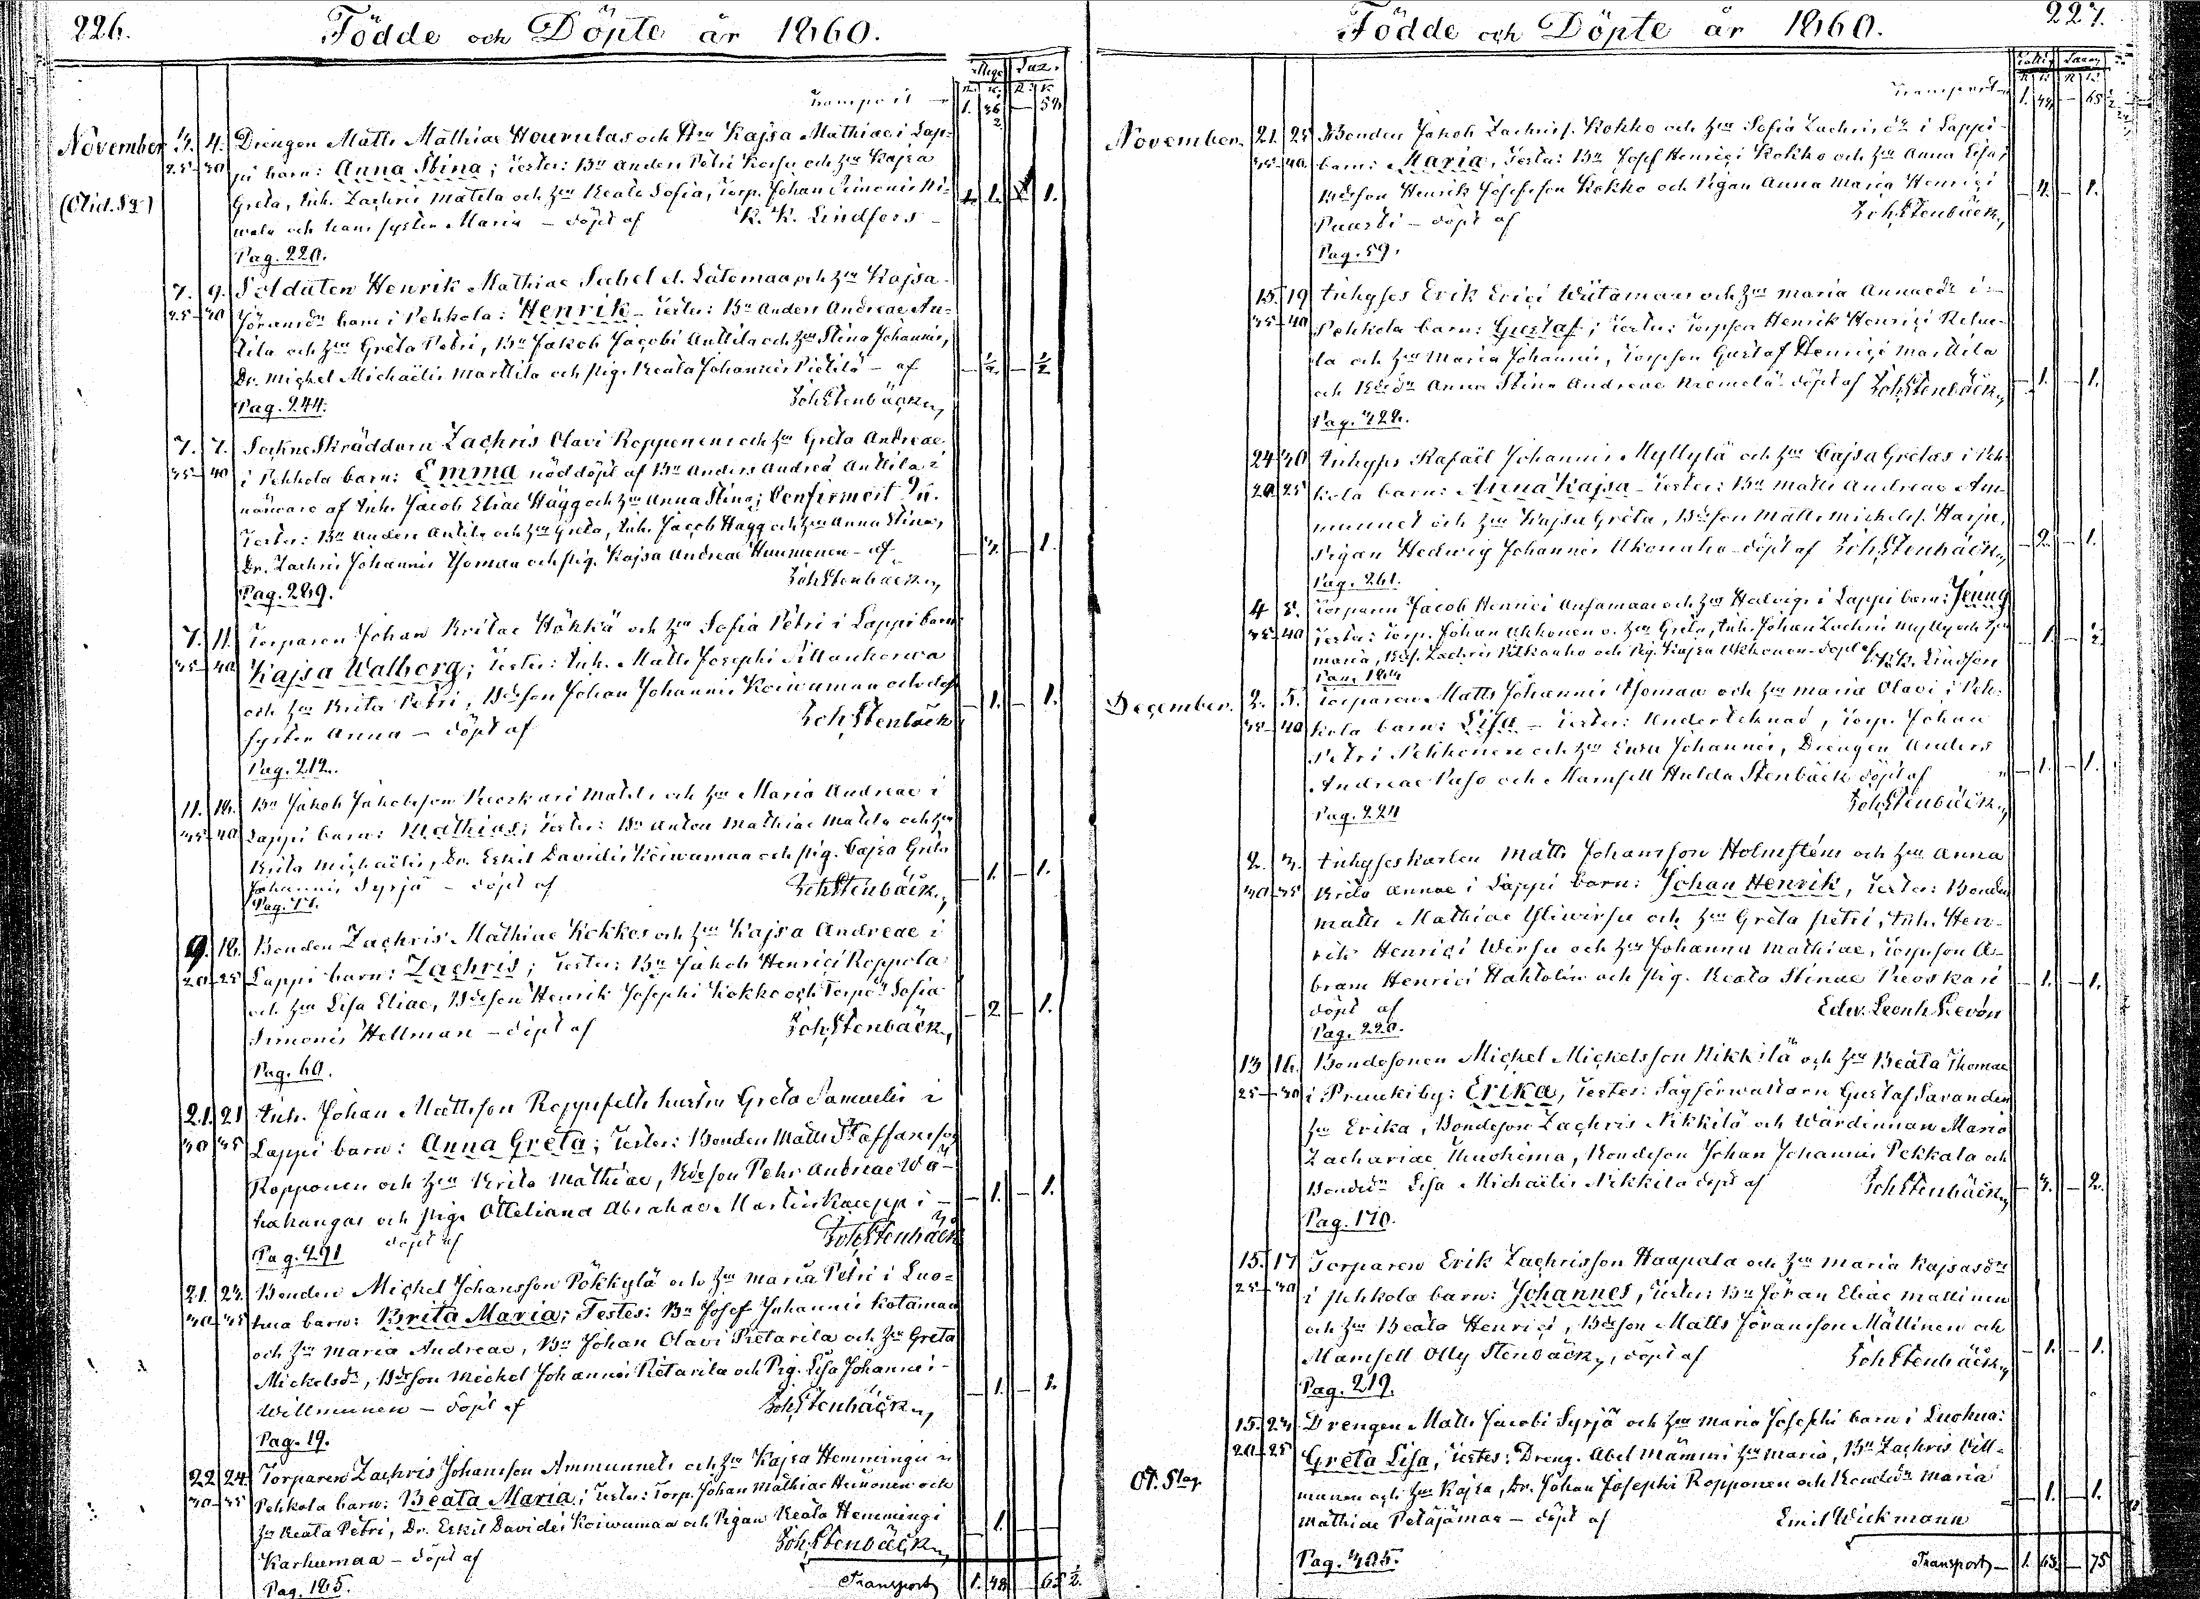 226.
Födde och Döpte år 1860.
Transport 1. 36 2 — 58
November 3. 4. Drengen Matts Mathiae Hourulas och Hru Kajsa Mathiae i Lap-
25-30 pi barn: Anna Stina; Testes: Bn Anders Petri och hru Kajsa
(Olid. Sg) Greta, Inh. Zachris Matila och hru Beata Sofia, Torp. Johan Simonis Ni-
wala och hans syster Maria — döpt af K. K. Lindfors — 1. 1.
Pag. 220.
7. 9. Soldaten Henrik Mathiae Sechel el. Latomaa och hru Kajsa
25-30 Göransdr barn i Pehkola: Henrik — Testes: Bn Anders Andreae An-
tila och hru Greta Petri, Bn Jakob Jacobi Anttila och hru Stina Johannis,
Dr. Michel Michaëlis Marttila och pig. Beata Johannis Pietilä — af — ½ — ½
Pag. 244. Joh. Stenbäck
7. 7. Sockne Skräddarn Zachris Olavi Ropponens och hru Greta Andreae
35-40 i Pehkola barn: Emma nöddöpt af Bn Anders Andreä Anttila i
närvaro af Inh. Jacob Eliae Hägg och hru Anna Stina; Confirmert 9
Testes: Bn Anders Antila och hru Greta, Inh. Jacob Hägg och hru Anna Stina,
Dr. Zachris Johannis Ylomaa och pig. Kajsa Andreae Hummonen — af — 1.
Pag. 289. Joh. Stenbäck
7. 11. Torparen Johan Britae Hökkä och hru Sofia Petri i Lappi barn
35-40 Kajsa Walborg; Testes: Inh. Matts Josephi Sillankorwa
och hru Brita Petri, Bdeson Johan Johannis Koiwumaa och dess — 1. — 1.
syster Anna — döpt af Joh. Stenbäck
Pag. 212.
11. 18. Bn Jakob Jakobsson Reoskari Matila och hru Maria Andreae i
35-40 Lappi barn: Mathias; Testes: Bn Anton Mathiae Matila och hru
Brita Michaëlis, Dr. Eskil Davidis Koiwumaa och pig. Cajsa Greta — 1. — 1.
Johannis Syrjä — döpt af Joh. Stenbäck
9. 18. Bonden Zachris Mathiae Kokkos och hru Kajsa Andreae i
20-25 Lappi barn: Zachris; Testes: Bn Jakob Henrici Roppola
och hru Lisa Eliae, Bdeson Henrik Josephi Kokko och Torpdr Sofia — 2 — 1.
Simonis Hellman — döpt af Joh. Stenbäck
Pag. 60.
21. 21 Inh. Johan Mattsson Reppufelts hustru Greta Samuelis i
30 35 Lappi barn: Anna Greta; Testes: Bonden Matts Staffansson
Ropponen och hru Brita Mathiae, Bdeson Petr Andreae Wä-
hakangas och pig. Otteliana Abrahae Martinkauppi — — 1. — 1.
Pag. 291 döpt af Joh. Stenbäck
21. 23. Bonden Michel Johansson Pökkylä och hru Maria Petri i Luo-
30-35 hua barn: Brita Maria; Testes: Bn Josef Johannis Kotamaa
och hru Maria Andreae, Bn Johan Olavi Pietarila och hru Greta
Mickelsdr, Bdeson Mickel Johannis Pietarila och Pig. Lisa Johannis — 1. — 1.
Willmunen — döpt af Joh. Stenbäck
Pag. 19.
22 24. Torparen Zachris Johansson Ammunnets och hru Kajsa Hemmingis i
30-35 Pehkola barn: Beata Maria; Testes: Torp. Johan Mathiae Huuonen och
hru Beata Petri, Dr. Eskil Davidis Koiwumaa och Pigan Beata Hemmingi — 1. — —
Karhumaa — döpt af Joh. Stenbäck
Pag. 185. Transport 1. 48 — 65 ½.
227.
Födde och Döpte år 1860.
Transport 1. 48 — 65 ½
November. 21. 25 Bonden Jakob Zachriss. Kokko och hru Sofia Zachrisdr i Lappi
35-40 barn: Maria, Testes: Bn Josef Henrici Kokko och hru Anna Lisa,
Bdeson Henrik Josefsson Kokko och Pigan Anna Maria Henrici — 1.
Puusti — döpt af Joh. Stenbäck
Pag. 59.
15. 19 Inhyses Erik Erici Wiitamaas och hru Maria Annaedr i
35-40 Pehkola barn: Gustaf; Testes: Torpson Henrik Henrici
la och hru Maria Johannis, Torpson Gustaf Henrici Marttila
och Bdedr Anna Stina Andreae Kremelä döpt af Joh. Stenbäck — 1. — 1.
24 30 Inhyses Rafaël Johannis Myllylä och hru Cajsa Gretas i Peh-
20 25 kola barn: Anna Kajsa — Testes: Bn Matts Andreae Am-
munnet och hru Kajsa Greta, Bdeson Matts Michelss. Harju,
Pigan Hedwig Johannis Ukonaho — döpt af Joh. Stenbäck — 2 — 1.
Pag. 261.
4 5. Torparen Jacob Henrici Ansamaas och hru Hedvigs i Lappi barn: Jenny
35-40 Testes: Torp. Johan Ukkonen o. hru Greta, Inh. Johan Zachris Mylly och hru — 1. — ½
Maria, Zachris Pitkanho och Pig. Kajsa Ukkonen — döpt af K. K. Lindfors
Pag. 184
December. 2. 5. Torparen Matts Johannis Ylomaa och hru Maria Olavi i Peh-
35-40 kola barn: Lisa — Testes: Undertecknad, Torp. Johan
Petri Pehkonen och hru Ewa Johannis, Drengen Anders
Andreae Paso och Mamsell Hulda Stenbäck döpt af — 1. — 1.
Pag. 224 Joh. Stenbäck
2. 3. Inhyseskarlen Matts Johansson Holmstens och hru Anna
30-35 Brita Annae i Lappi barn: Johan Henrik, Testes: Bonden
Matts Mathiae Yliwirsu och hru Greta Petri, Inh. Hen-
rik Henrici Wirsu och hru Johanna Mathiae, Torpson A-
bram Henrici Hahtolin och pig. Beata Stinae Reoskari — 1. — 1.
döpt af Edw. Leonh. Levón
Pag. 220.
13 16. Bondesonen Michel Mickelsson Nikkilä och hru Beata Thomae
25-30 i Pruukiby: Erika, Testes: Sågförwaltarn Gustaf Savander
hru Erika, Bondeson Zachris Nikkilä och Wärdinnan Maria
Zachariae Knuohima, Bondeson Johan Johannis Pekkala och
Bondedr Lisa Michaëlis Nikkila döpt af Joh. Stenbäck — 3. — 2.
Pag. 170.
15. 17 Torparen Erik Zachrisson Haapala och hru Maria Kajsasdr
25-30 i Pehkola barn: Johannes, Testes: Bn Jöran Eliae Mattinen
och hru Beata Henrici, Bdeson Matts Göransson Mällinen och
Mamsell Olly Stenbäck, döpt af Joh. Stenbäck — 1. — 1.
Pag. 219.
15. 23. Drengen Matts Jacobi Syrjä och hru Maria Josephi barn i Luohua:
20-25 Greta Lisa, Testes: Dreng. Abel Mämmi hru Maria, Bn Zachris Vill-
Ol. Slag. manen och hru Kajsa, Dr. Johan Josephi Ropponen och Bondedr Maria — 1. — 1.
Mathiae Petäjämaa — döpt af Emil Wichmann
Pag. 305. Transport 1. 63 — 75